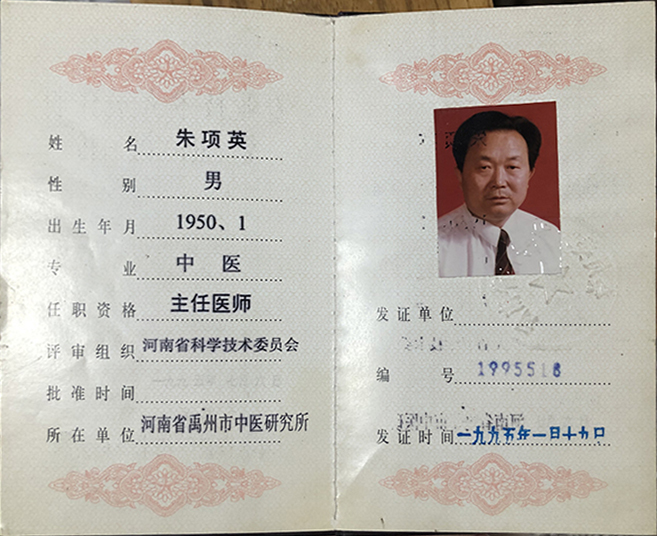 姓 名 朱项英
性 别 男
出生年月 1950、1
专 业 中 医
任职资格 主任医师
评审组织 河南省科学技术委员会
批准时间
所在单位 河南省禹州市中医研究所
发证单位
编 号 1995518
发证时间 一九九五年一月十九日